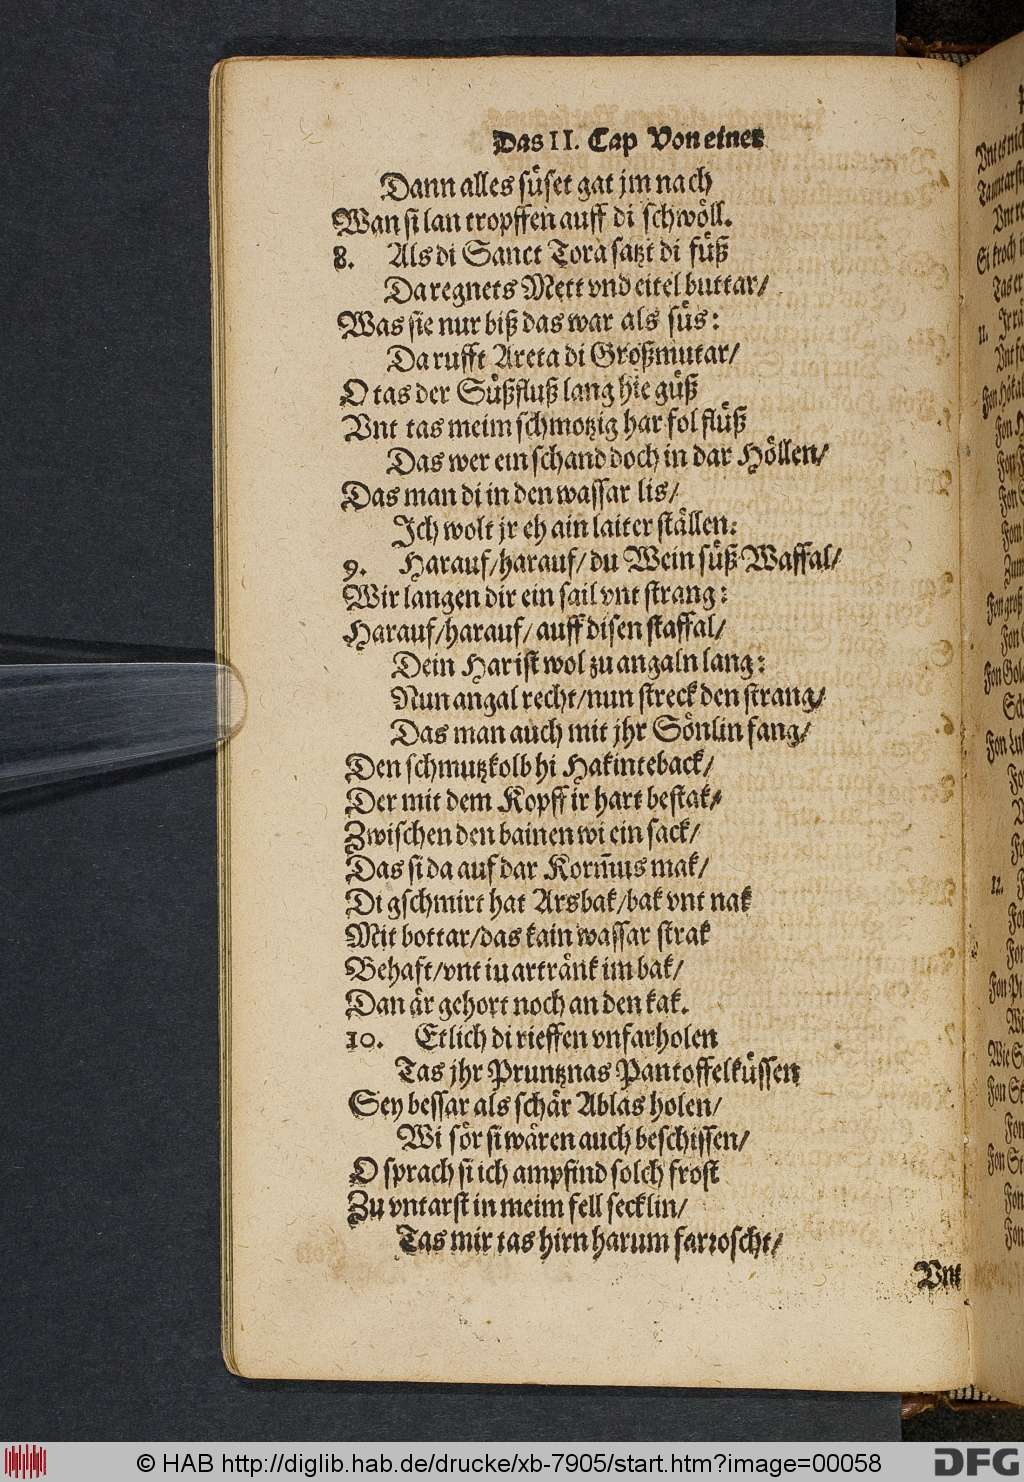 Das II. Cap Von einer
Dann alles süset gat jm nach
Wan si lan tropffen auff di schwöll.
8. Als di Sanct Tora satzt di füß
Da regnets Mett vnd eitel buttar/
Was sie nur biß das war als süs:
Da rufft Areta di Großmutar/
O tas der Süßfluß lang hie güß
Vnt tas meim schmotzig har fol flüß
Das wer ein schand doch in dar Höllen/
Das man di in den wassar lis/
Ich wolt jr eh ain laiter ställen:
9. Harauf/harauf/ du Wein süß Waffal/
Wir langen dir ein sail vnt strang:
Harauf/harauf/ auff disen staffal/
Dein Har ist wol zu angaln lang:
Nun angal recht/nun streck den strang/
Das man auch mit jhr Sönlin fang/
Den schmutzkolb hi Hakinteback/
Der mit dem Kopff ir hart bestak/
Zwischen den bainen wi ein sack/
Das si da auf dar Korm̃us mak/
Di gschmirt hat Arsbak/bak vnt nak
Mit bottar/das kain wassar strak
Behaft/vnt iu artränk im bak/
Dan är gehort noch an den kak.
10. Etlich di rieffen vnfarholen
Tas jhr Pruntznas Pantoffelküssen
Sey bessar als schär Ablas holen/
Wi sör si wären auch beschissen/
O sprach si ich ampfind solch frost
Zu vntarst in meim fell secklin/
Tas mir tas hirn harum farroscht/
Vnt
Vnt
11.
12.
© HAB http://diglib.hab.de/drucke/xb-7905/start.htm?image=00058
DFG